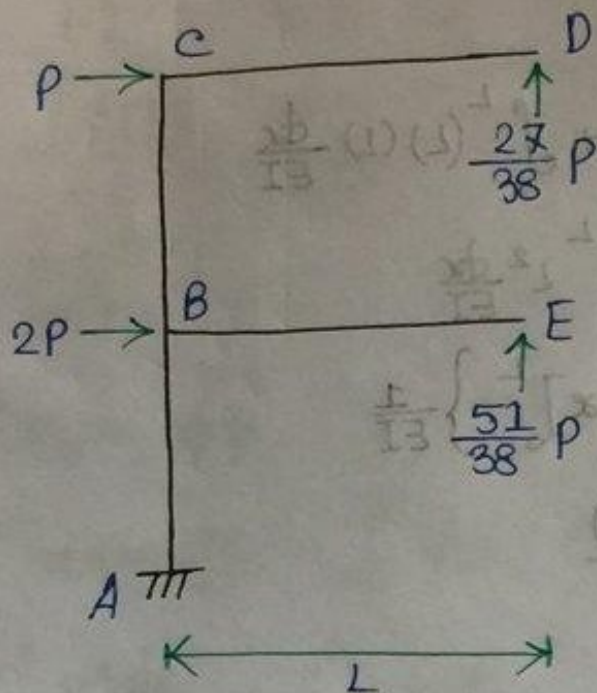 C D
P
27/38 P
B
2P E
51/38 P
A
L